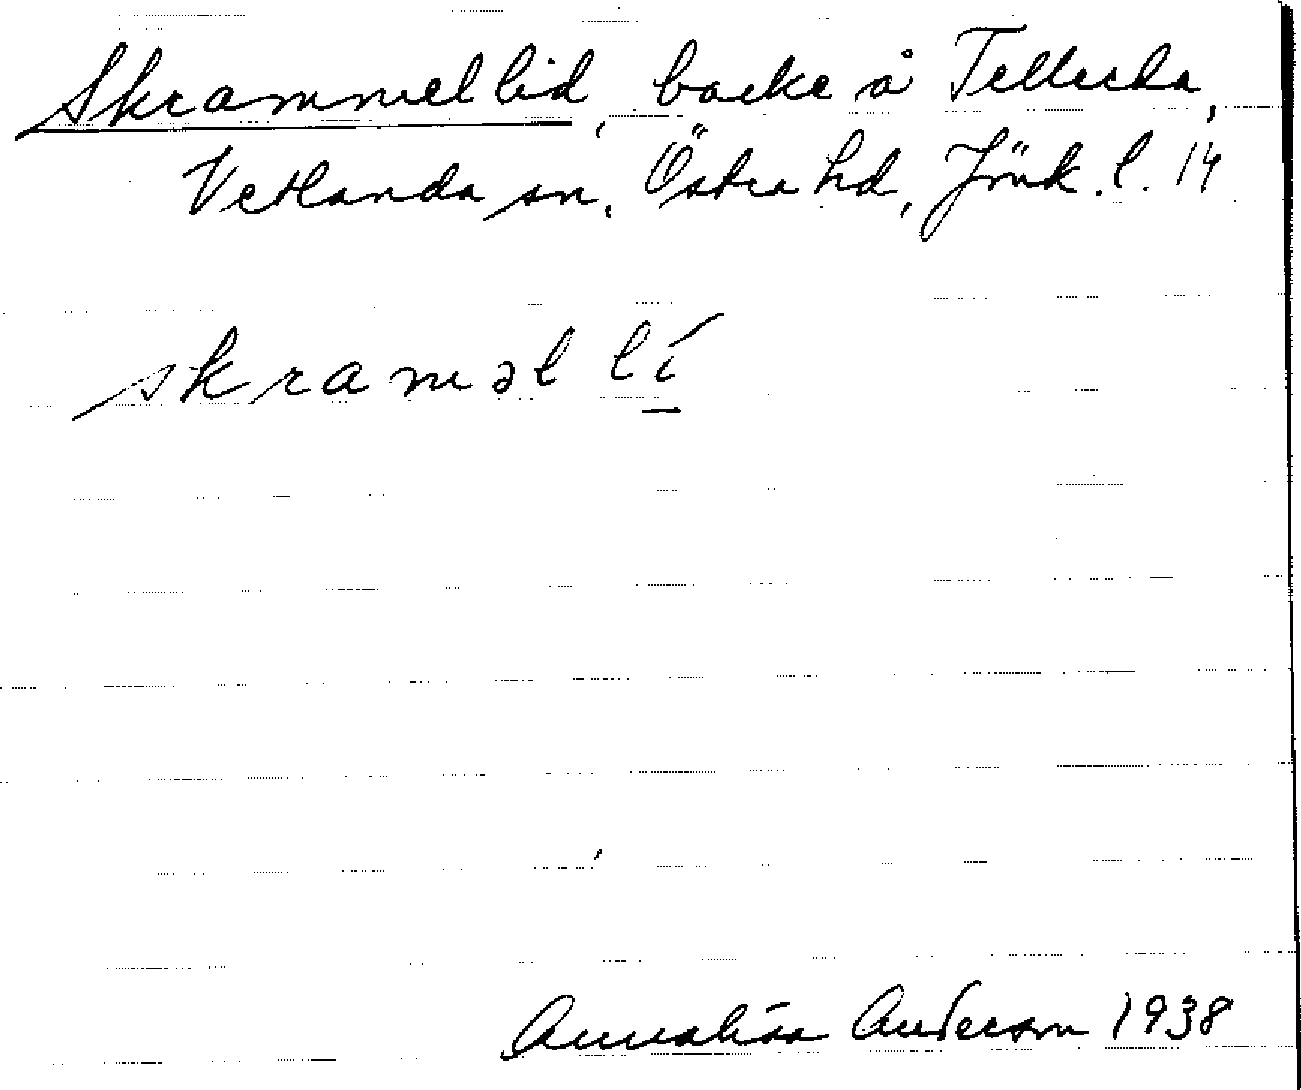 Skrammellid, backe å Telleda,
Vetlanda sn, Östra hd, Jönk. l. 14
skraməl lí
Annalisa Anderson 1938